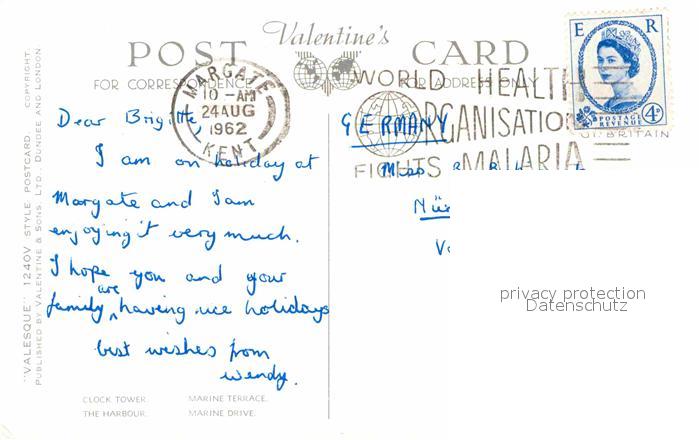 POST Valentine's CARD
FOR CORRESPONDENCE FOR ADDRESS ONLY
E R
POSTAGE
REVENUE
4D
MARGATE
10 - AM
24 AUG
1962
KENT
WORLD HEALTH
ORGANISATION
FIGHTS MALARIA
BRITAIN
Dear Brigitte,
I am on holiday at
Margate and I am
enjoying it very much.
I hope you and your
family are having nice holidays
best wishes from
Wendy.
GERMANY
Miss
privacy protection
Datenschutz
CLOCK TOWER. MARINE TERRACE.
THE HARBOUR. MARINE DRIVE.
"VALESQUE" 1240V STYLE POSTCARD. COPYRIGHT.
PUBLISHED BY VALENTINE & SONS, LTD., DUNDEE AND LONDON